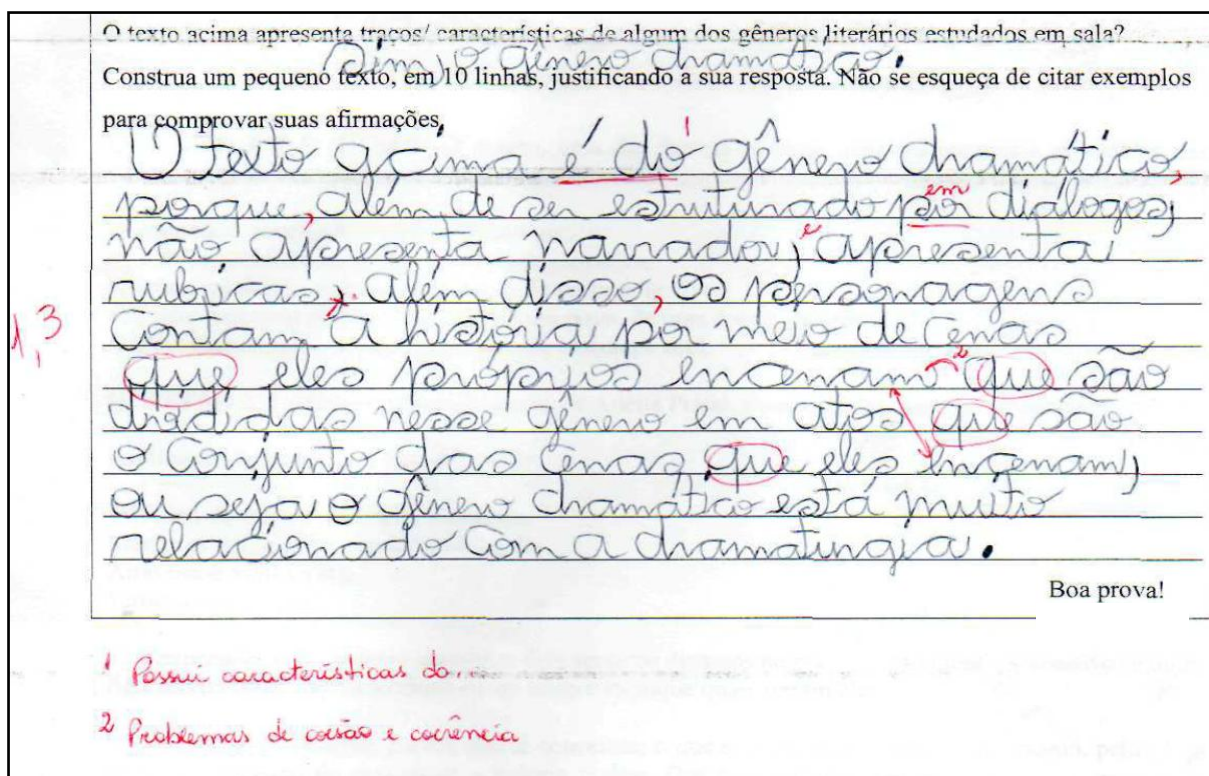 O texto acima apresenta traços/ características de algum dos gêneros literários estudados em sala?
Sim, o gênero dramático.
Construa um pequeno texto, em 10 linhas, justificando a sua resposta. Não se esqueça de citar exemplos
para comprovar suas afirmações.
1
O texto acima é do gênero dramático,
em
porque, além, de ser estruturado por diálogos,
e
não apresenta narrador, apresenta
rubricas, além, disso, os personagens
1,3
contam, a história por meio de cenas
2
que eles próprios encenam que são
divididas nesse gênero em atos que são
o conjunto das cenas que eles encenam,
ou seja o gênero dramático está muito
relacionado com a dramaturgia.
Boa prova!
1 Possui características do...
2 Problemas de coesão e coerência